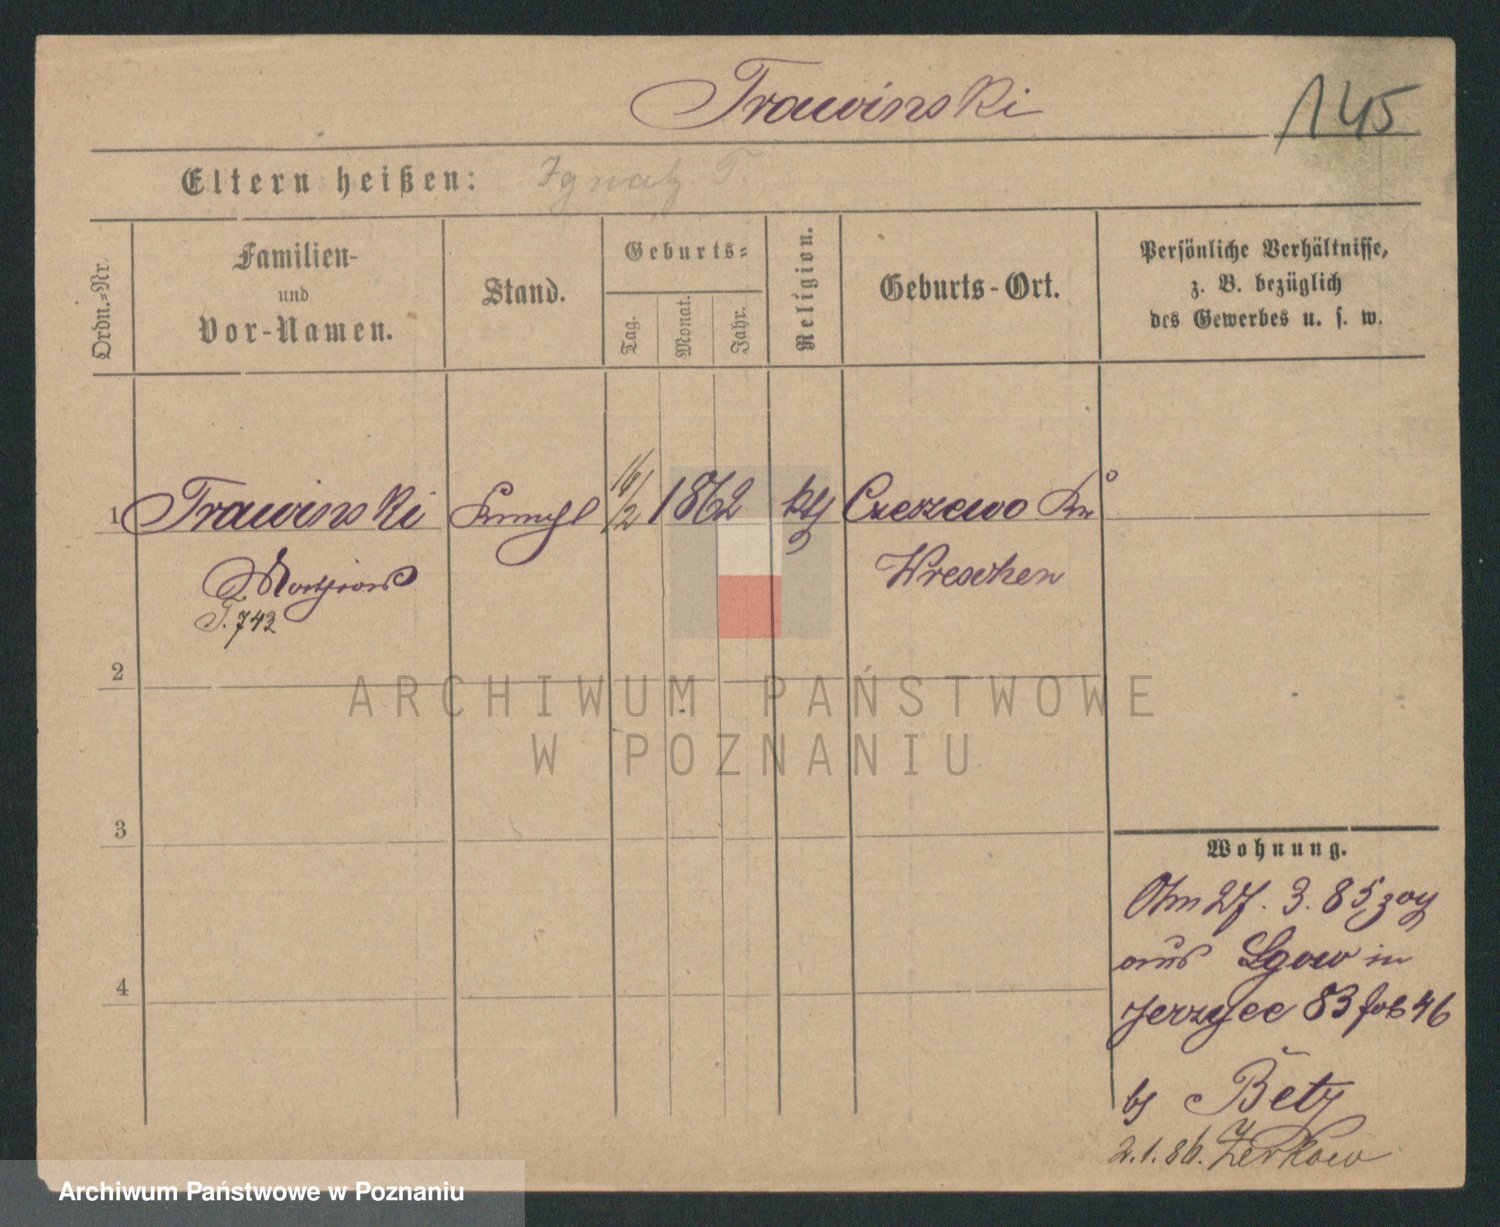 Trawinski
145
Eltern heißen: Ignatz T.
Ordn.=Nr.
Familien-
und
Vor-Namen.
Stand.
Geburts=
Tag.
Monat.
Jahr.
Religion.
Geburts-Ort.
Persönliche Verhältnisse,
z. B. bezüglich
des Gewerbes u. s. w.
1 Trawinski 16/2 1862 kth Czeszewo Kr
Wreschen
T. 742
2
ARCHIWUM PAŃSTWOWE
W POZNANIU
3
4
Wohnung.
27. 3. 85 zog
aus Lgow in
83
Betz
2.1.86. Zerkow
Archiwum Państwowe w Poznaniu